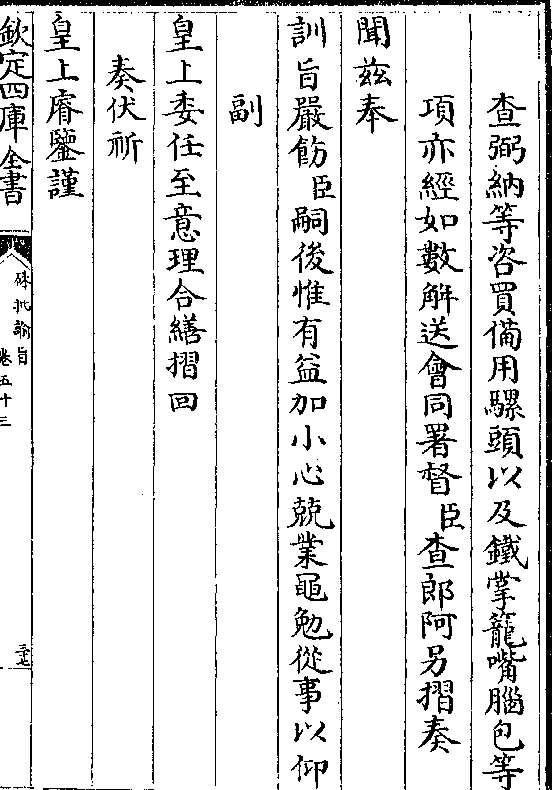 查弼納等咨買備用騾頭以及鐵掌籠嘴腦包等
項亦經如數解送會同署督臣查郎阿另摺奏
聞茲奉
訓旨嚴飭臣嗣後惟有益加小心兢業黽勉從事以仰
副
皇上委任至意理合繕摺回
奏伏祈
皇上睿鑒謹
欽定四庫全書
硃批諭旨
卷五十三
三七